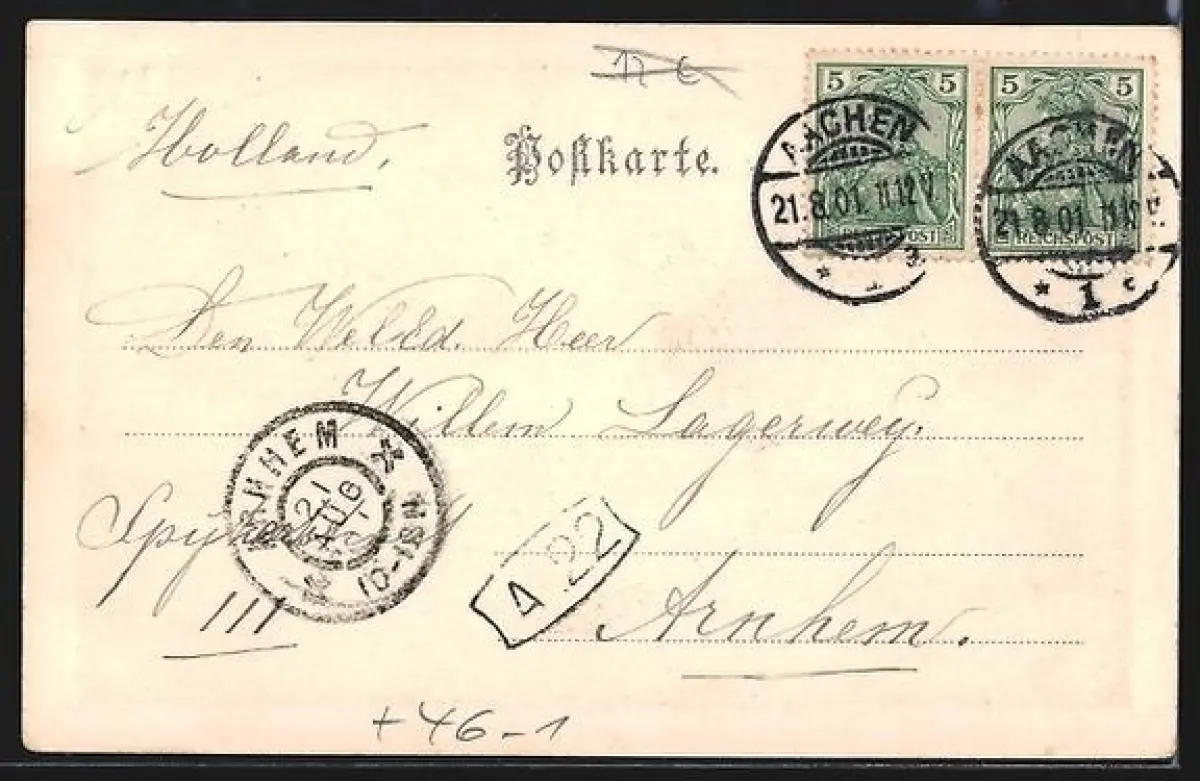 17 €
5 5 5 5
Holland,
Postkarte.
AACHEN
21.8.01. 11-12 V
* 1
REICHSPOST
AACHEN
21.8.01. 11-12 V.
* 1 c
REICHSPOST
Den WelEd. Heer
Willem Lagerwey.
ARNHEM
21 AUG
10-11 N
A 22
III
Arnhem.
+46-1